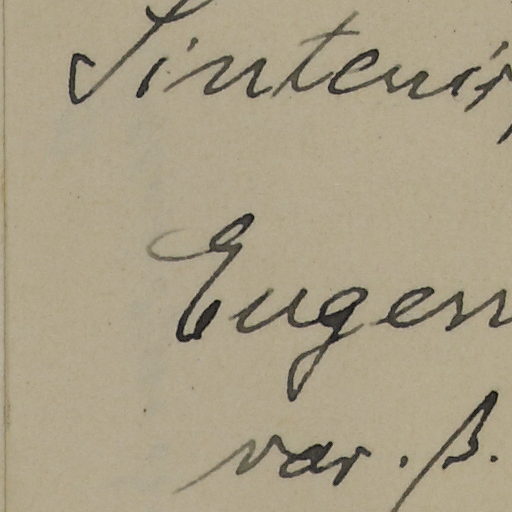 Sintenis,
Eugen
var. β.